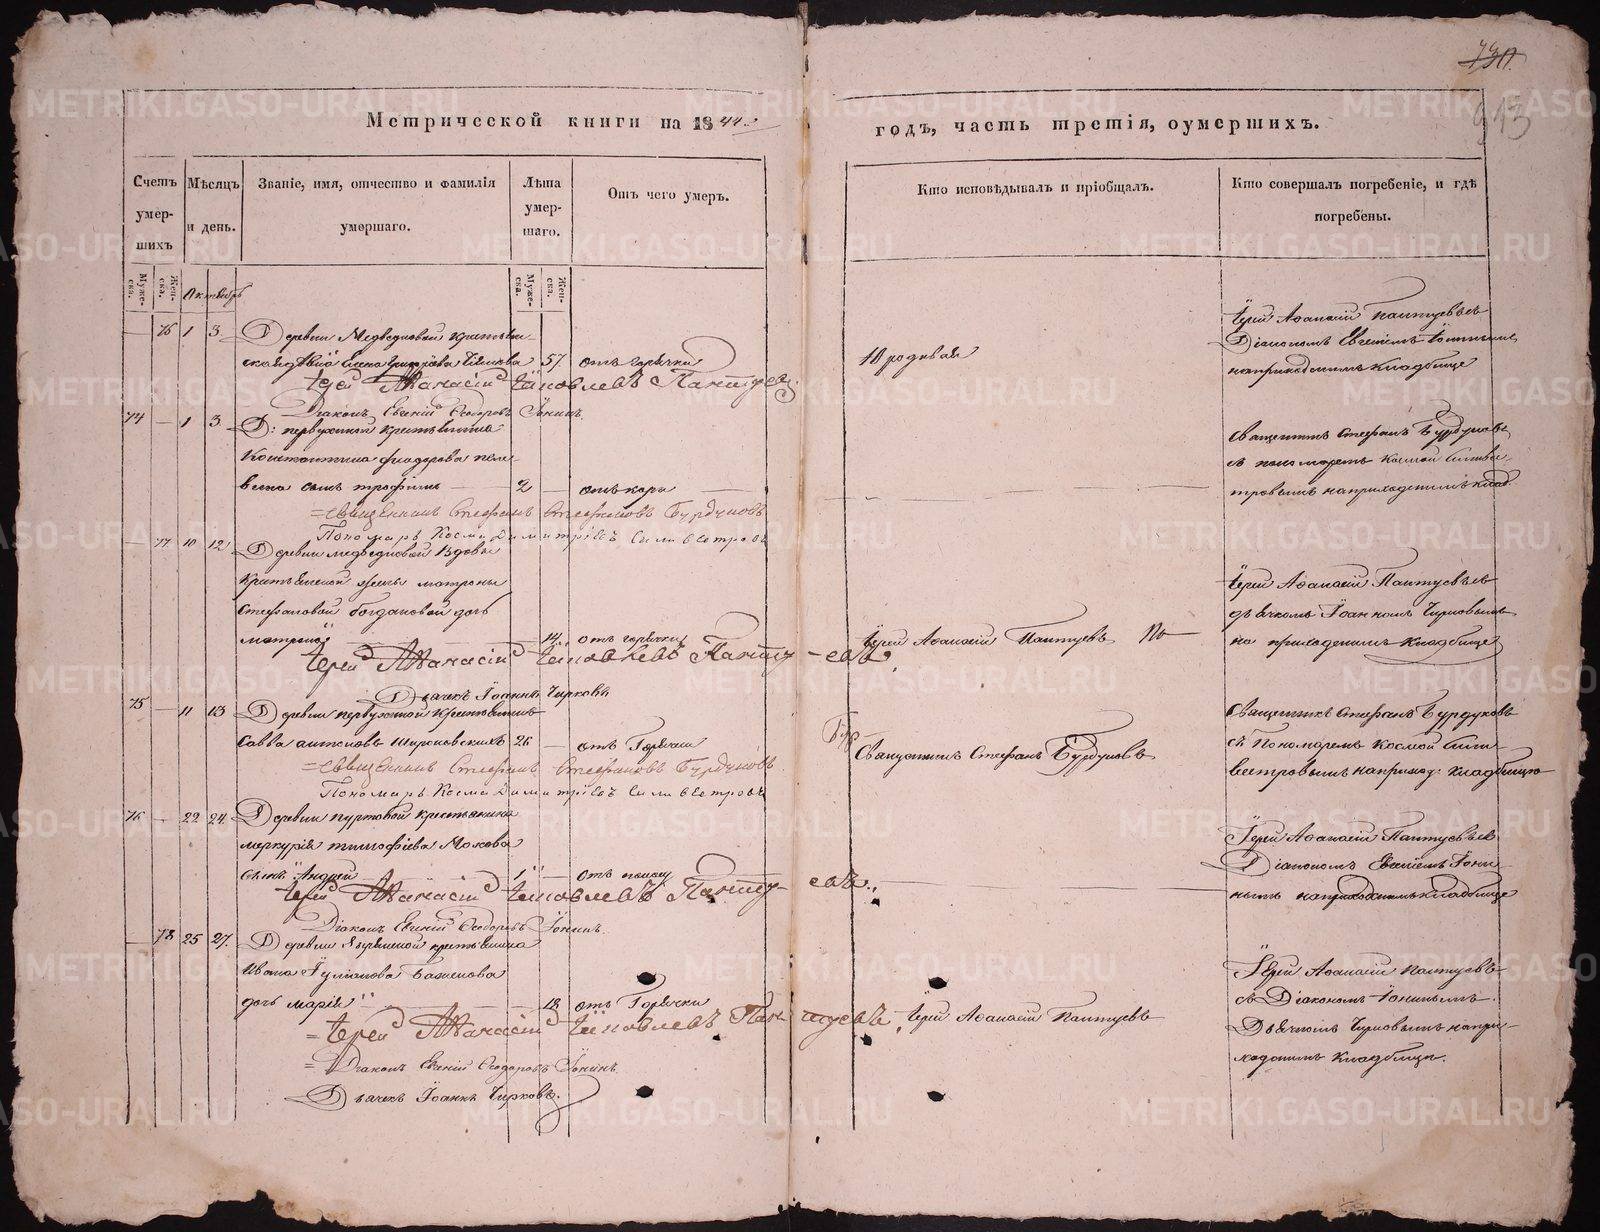 730.
913
Метрической книги на 1844 годъ, часть третія, оумершихъ.
Счетъ умер-шихъ
Мѣсяцъ и день.
Званіе, имя, отчество и фамилія умершаго.
Лѣта умер-шаго.
Отъ чего умеръ.
Кто исповѣдывалъ и пріобщалъ.
Кто совершалъ погребеніе, и гдѣ погребены.
Муже-ска.
Жен-ска.
Октябрь
Муже-ска.
Жен-ска.
— 76 1 3. Деревни Медведковой крестьян-
57. отъ горячки
Іерей Аѳанасій Іаковлевъ Пантуевъ.
Діаконъ Евгеній Ѳеодоровъ Іонинъ.
Іерей Аѳанасій Пантуевъ съ
Діакономъ Евгеніемъ Іонинымъ
на приходскимъ кладбище
74 — 1 3. Д: первухиной крестьянина
Константина Феодорова
сынъ трофимъ — 2 — отъ кори —
=Священникъ Стефанъ Стефановъ Бурдуковъ
Пономарь Косма Димитріевъ Силивестровъ
Священникъ Стефанъ Бурдуковъ
съ пономаремъ Космой Силиве-
стровымъ на приходскимъ клад.
— 77 10 12. Деревни медведковой вдовы
крестьянской жены матроны
Стефановой богдановой дочь
матрона — 14. отъ горячки
Іерей Аѳанасій Іаковлевъ Панту-евъ
Дьячекъ Іоаннъ Чирковъ
Іерей Аѳанасій Пантуевъ
Іерей Аѳанасій Пантуевъ съ
дьячкомъ Іоанномъ Чирковымъ
на приходскимъ кладбище
75 — 11 13 Деревни первухиной крестьянинъ
Савва антоновъ Широковскихъ 26 — отъ Горячки
=Священникъ Стефанъ Стефановъ Бурдуковъ
Пономарь Косма Димитріевъ Силивестровъ
Священникъ Стефанъ Бурдуковъ
Священникъ Стефанъ Бурдуковъ
съ Пономаремъ Космой Сили-
вестровымъ на приход: кладбище
76 — 22 24. Деревни пуртовой крестьянина
меркурія тимофѣева Мохова
сынъ Андрей 1 отъ поносу
Іерей Аѳанасій Іаковлевъ Панту-евъ.
Діаконъ Евгеній Ѳеодоровъ Іонинъ.
Іерей Аѳанасій Пантуевъ съ
Діакономъ Евгеніемъ Іони-
нымъ на приходскимъ кладбище
— 78 25 27. Деревни крестьянина
Ивана Іуліанова Баженова
дочь марія — 18. отъ Горячки
=Іерей Аѳанасій Іаковлевъ Пантуевъ,
=Діаконъ Евгеній Ѳеодоровъ Іонинъ.
Дьячекъ Іоаннъ Чирковъ.
Іерей Аѳанасій Пантуевъ
Іерей Аѳанасій Пантуевъ
съ Діакономъ Іонинымъ.
Дьячкомъ Чирковымъ на при-
ходскимъ кладбище.